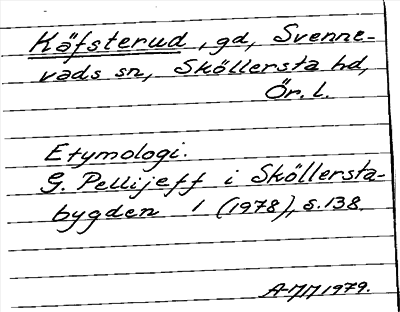 Köfsterud, gd, Svenne-
vads sn, Sköllersta hd,
Ör. l.
Etymologi.
G. Pellijeff i Sköllersta-
bygden 1 (1978), s. 138.
1979.